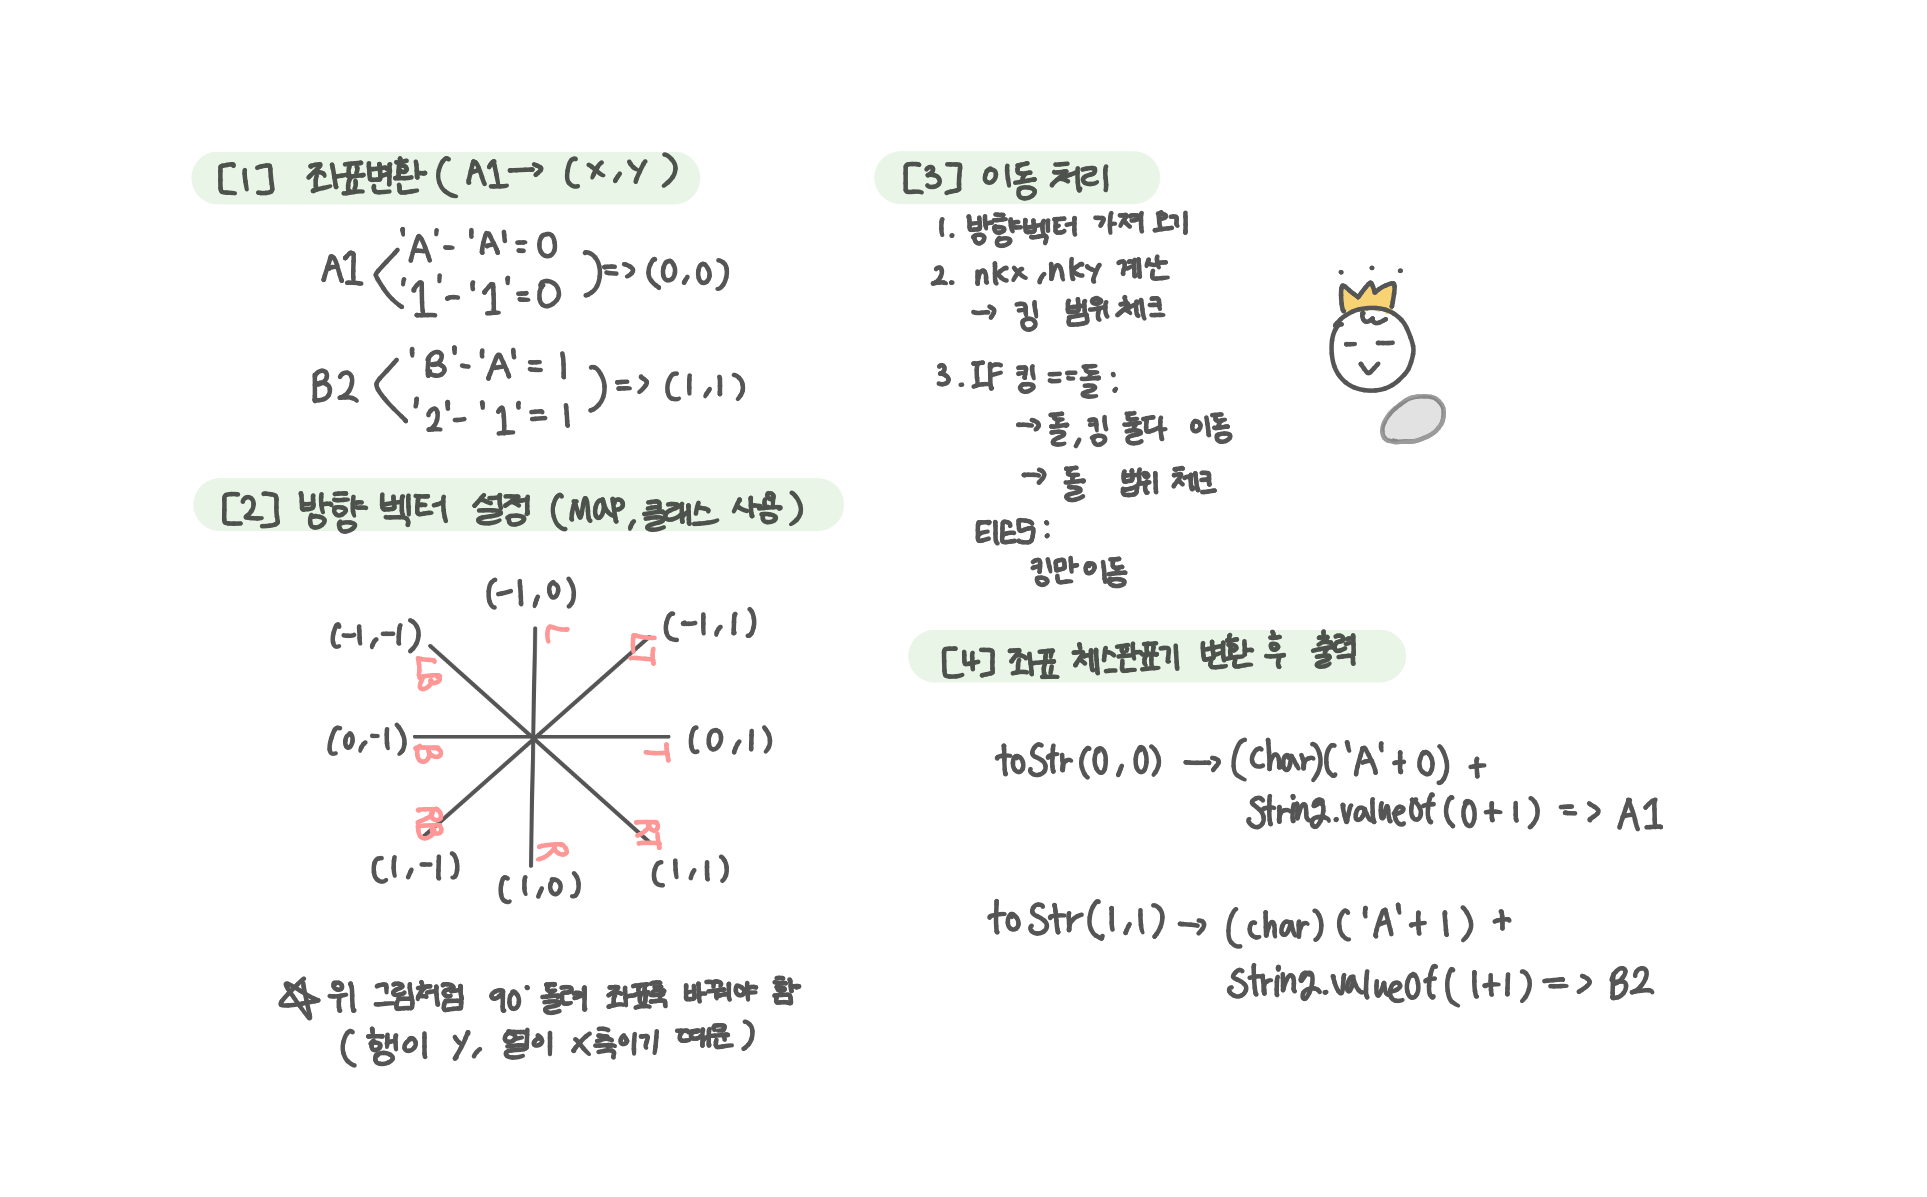 [1] 좌표변환 (A1→ (x,y)
A1 'A'-'A'=0
'1'-'1'=0 )=>(0,0)
B2 'B'-'A'=1
'2'-'1'=1 )=>(1,1)
[2] 방향 벡터 설정 (MAP, 클래스 사용)
(-1,0)
(-1,-1) L LT (-1,1)
LB
(0,-1) B T (0,1)
RB R RT
(1,-1) (1,0) (1,1)
☆ 위 그림처럼 90° 돌려 좌표축 바꿔야 함
(행이 Y, 열이 X축이기 때문)
[3] 이동 처리
1. 방향벡터 가져오기
2. nkx, nky 계산
→ 킹 범위체크
3. IF 킹==돌:
→돌,킹 둘다 이동
→ 돌 범위 체크
ElES:
킹만이동
[4] 좌표 체스판표기 변환 후 출력
toStr(0,0) →(char)('A'+0) +
String.valueOf(0+1) => A1
toStr(1,1)→ (char) ('A'+1) +
String.valueOf(1+1) => B2